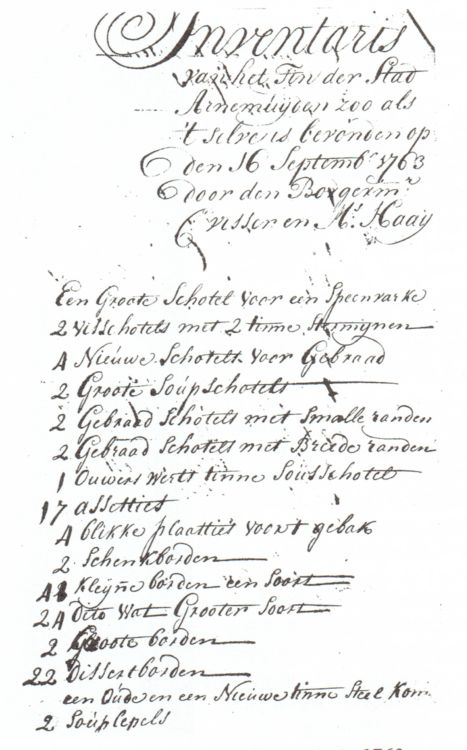 Inventaris
van het Tin der Stad
Arnemuyden zoo als
't selve is bevonden op
den 16 Septembr 1763
door den Borgermr
Visser en Mr Haay
Een Groote Schotel voor een Speenvarke
2 visschotels met 2 tinne
4 Nieuwe Schotels voor Gebraad
2 Groote Soupschotels
2 Gebraad Schotels met Smalle randen
2 Gebraad Schotels met Breede randen
1 Ouwerwerts tinne Sousschotel
17 assetties
4 blikke plaatties voor't gebak
2 Schenkborden
48 Kleyne borden een Soort
24 Dito Wat Grooter Soort
2 Groote borden
22 Dissertborden
een Oude en een Nieuwe tinne Steel Kom
2 Souplepels